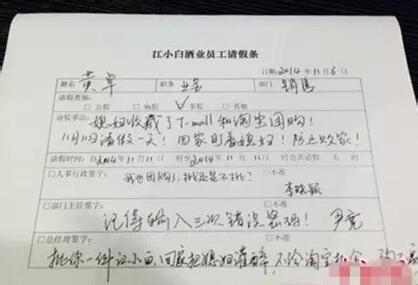 江小白酒业员工请假条
日期:2014年11月6日
姓名 黄卓 职务 业务 部门 销售
请假类别: □公假 □病假 ☑事假 □其他
请假事由: 媳妇收藏了T-mall和淘宝团购!
11月11日请假一天!回家盯着媳妇!防止败家!
请假时间:自2014年11月11日至2014年11月11日
□人事行政签字: 我也团购了,批还是不批? □不准
李晓颖
□部门主管签字: □不准
记得输入三次错误密码! 尹亮
□总经理签字: □不准
批你一件江小白,回家把媳妇灌醉,不给淘宝机会,